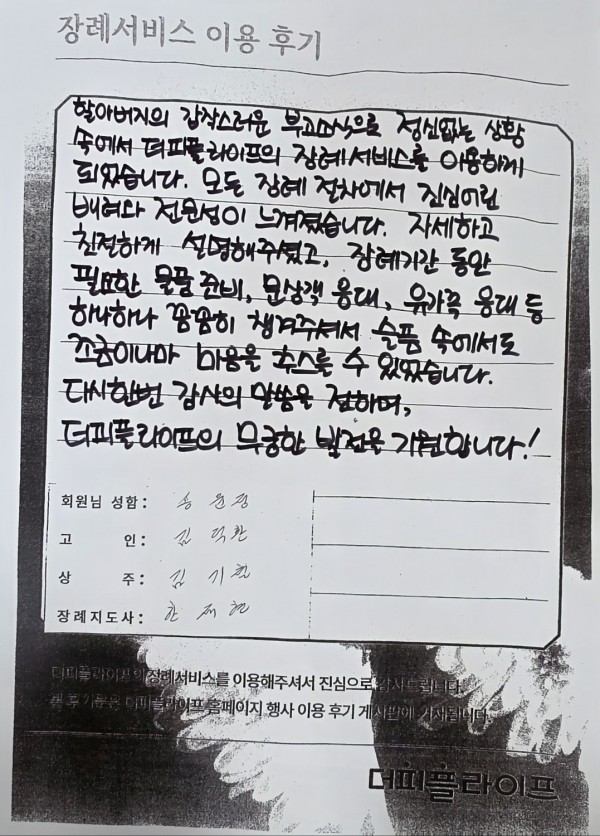 장례서비스 이용 후기
할아버지의 갑작스러운 부고소식으로 정신없는 상황
속에서 더피플라이프의 장례서비스를 이용하게
되었습니다. 모든 장례 절차에서 진심어린
배려와 전문성이 느껴졌습니다. 자세하고
친절하게 설명해주셨고, 장례기간 동안
필요한 물품 준비, 문상객 응대, 유가족 응대 등
하나하나 꼼꼼히 챙겨주셔서 슬픔 속에서도
조금이나마 마음을 추스를 수 있었습니다.
다시한번 감사의 말씀을 전하며,
더피플라이프의 무궁한 발전을 기원합니다!
회원님 성함: 송윤정
고 인: 김덕환
상 주: 김기철
장례지도사: 한재현
더피플라이프의 장례서비스를 이용해주셔서 진심으로 감사드립니다.
본 후기들은 더피플라이프 홈페이지 행사 이용 후기 게시판에 기재됩니다.
더피플라이프